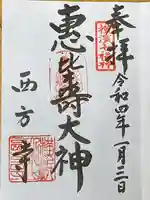 奉拝
令和四年一月三日
恵比寿大神
西方寺